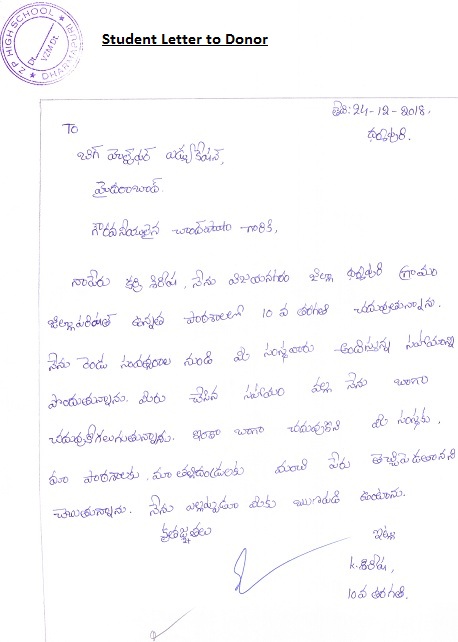 Z P HIGH SCHOOL
Dt.
VZM Dt.
Student Letter to Donor
తేది: 24-12-2018,
ధర్మపురి.
To
బిగ్ హెల్ప్ ఫర్ ఎడ్యుకేషన్,
హైదరాబాద్.
గౌరవనీయులైన చాంద్‌పాషా గారికి,
నా పేరు కర్రి శిరీష, నేను విజయనగరం జిల్లా ధర్మపురి గ్రామం
జిల్లా పరిషత్ ఉన్నత పాఠశాలలో 10 వ తరగతి చదువుతున్నాను.
నేను రెండు సంవత్సరాల నుండి మీ సంస్థవారు అందిస్తున్న సహాయాన్ని
పొందుతున్నాను. మీరు చేసిన సహాయం వల్ల నేను బాగా
చదువుకోగలుగుతున్నాను. ఇంకా బాగా చదువుకొని మీ సంస్థకు,
మా పాఠశాలకు, మా తల్లిదండ్రులకు మంచి పేరు తెచ్చిపెడతానని
చెబుతున్నాను. నేను ఎల్లప్పుడూ మీకు ఋణపడి ఉంటాను.
కృతజ్ఞతలు
ఇట్లు
k. శిరీష,
10వ తరగతి.